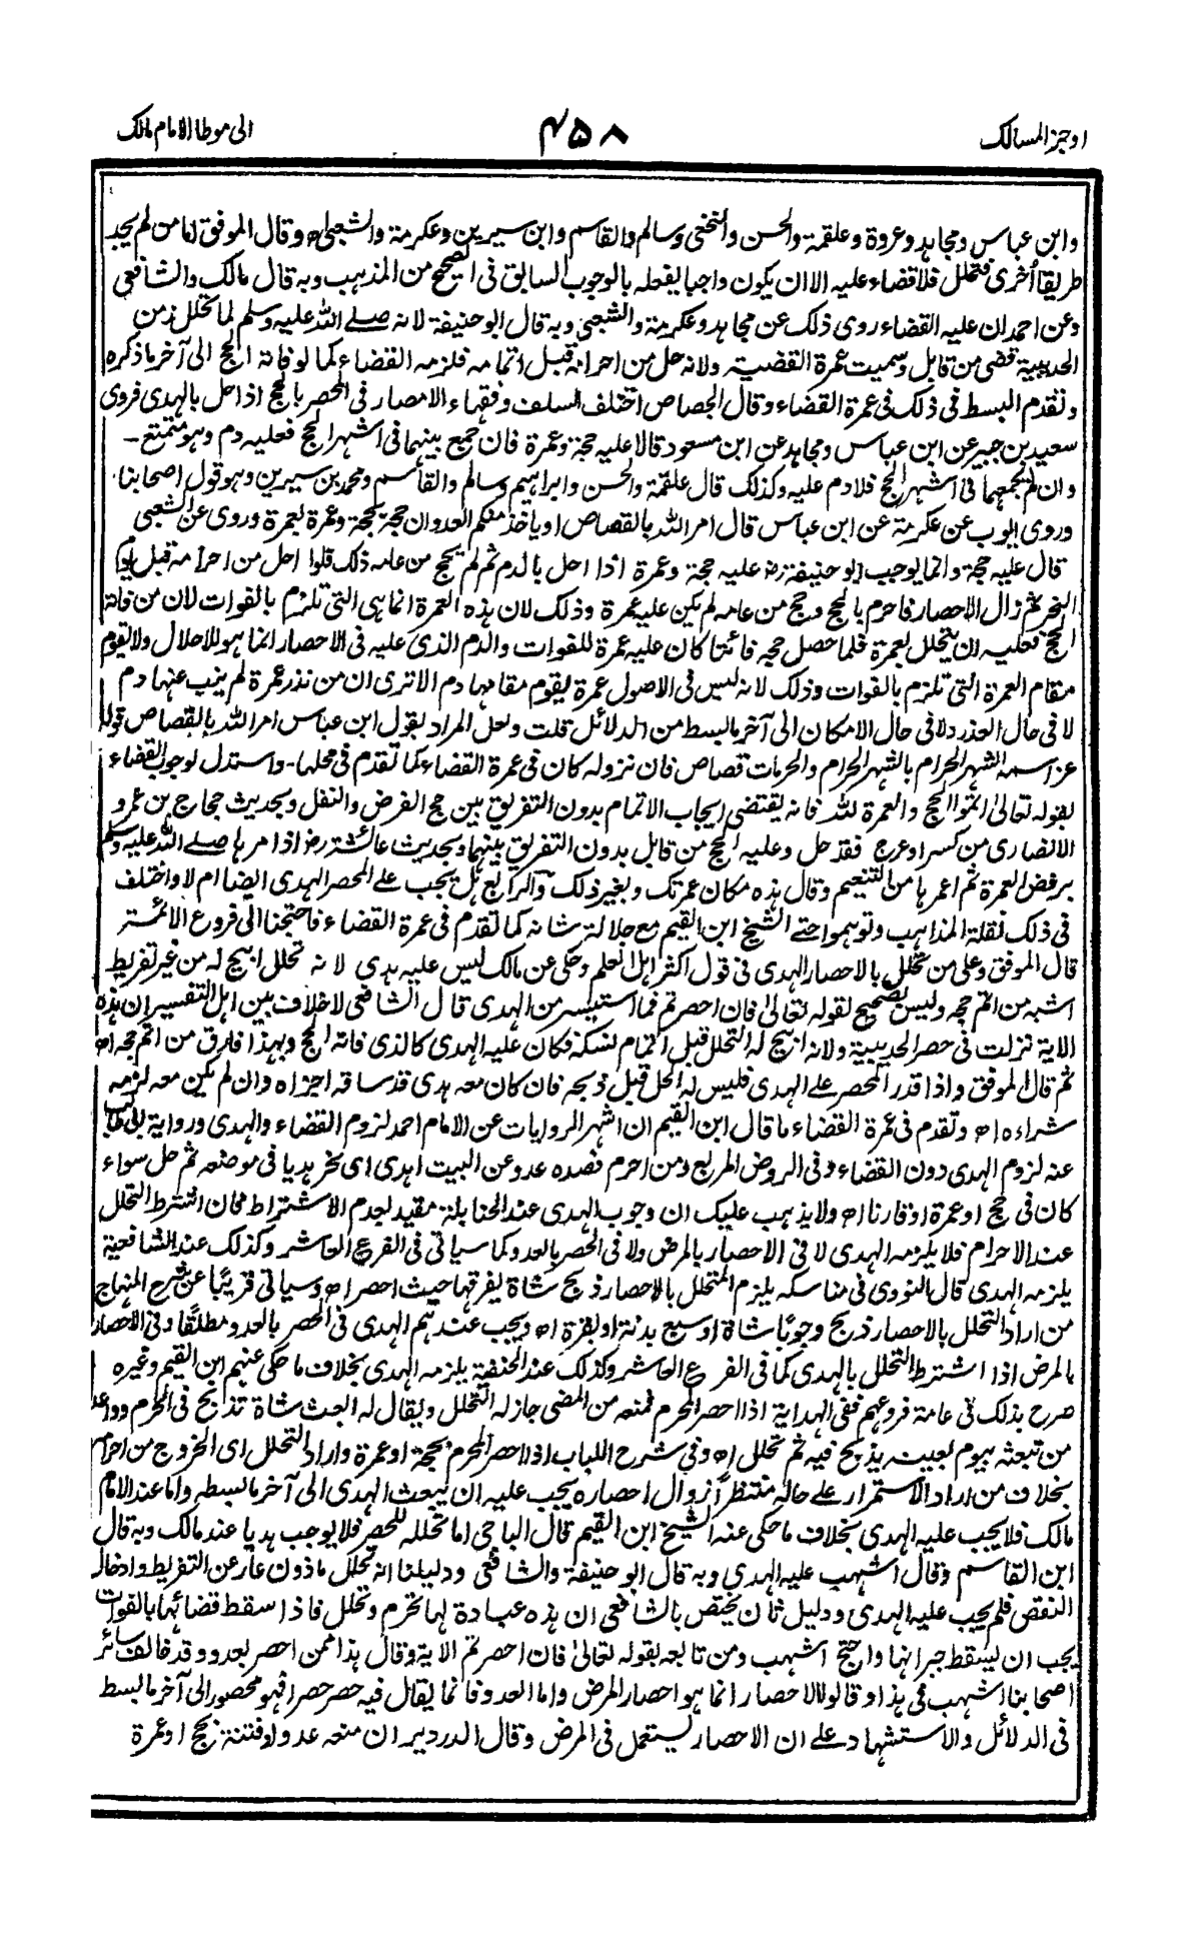 اوجز المسالك
٤٥٨
الى موطا الامام مالك
وابن عباس ومجاهد وعروة وعلقمة والحسن والنخعى وسالم والقاسم وابن سيرين وعكرمة والشعبى اه وقال الموفق اما من لم يجد
طريقا أخرى فتحلل فلا قضاء عليه الا ان يكون واجبا يفعله بالوجوب السابق فى الصحيح من المذهب وبه قال مالك والشافعى
وعن احمد ان عليه القضاء روى ذلك عن مجاهد وعكرمة والشعبى وبه قال ابو حنيفة لانه صلى الله عليه وسلم لما تحلل زمن
الحديبية قضى من قابل وسميت عمرة القضية ولانه حل من احرامه قبل اتمامه فلزمه القضاء كما لو فاته الحج الى آخر ما ذكره
وتقدم البسط فى ذلك فى عمرة القضاء وقال الجصاص اختلف السلف وفقهاء الامصار فى المحصر بالحج اذا حل بالهدى فروى
سعيد بن جبير عن ابن عباس ومجاهد عن ابن مسعود قالا عليه حجة وعمرة فان جمع بينهما فى اشهر الحج فعليه دم وهو متمتع -
وان لم يجمعهما فى اشهر الحج فلا دم عليه وكذلك قال علقمة والحسن وابراهيم وسالم والقاسم ومحمد بن سيرين وهو قول اصحابنا
وروى ايوب عن عكرمة عن ابن عباس قال امر الله بالقصاص او ياخذ منكم العدوان حجة بحجة وعمرة بعمرة وروى عن الشعبى
قال عليه حجة وانما يوجب ابو حنيفة رض عليه حجة وعمرة اذا احل بالدم ثم لم يحج من عامه ذلك فلو احل من احرامه قبل يوم
النحر ثم زال الاحصار فاحرم بالحج وحج من عامه لم يكن عليه عمرة وذلك لان هذه العمرة انما هى التى تلزم بالفوات لان من فاته
الحج فعليه ان يتحلل بعمرة فلما حصل حجه فائتا كان عليه عمرة للفوات والدم الذى عليه فى الاحصار انما هو للاحلال ولا يقوم
مقام العمرة التى تلزم بالفوات وذلك لانه ليس فى الاصول عمرة يقوم مقامها دم الا ترى ان من نذر عمرة لم ينب عنها دم
لا فى حال العذر ولا فى حال الامكان الى آخر ما بسط من الدلائل قلت ولعل المراد بقول ابن عباس امر الله بالقصاص قوله
عز اسمه الشهر الحرام بالشهر الحرام والحرمات قصاص فان نزوله كان فى عمرة القضاء كما تقدم فى محلها - واستدل لوجوب القضاء
بقوله تعالى اتموا الحج والعمرة لله فانه يقتضى ايجاب الاتمام بدون التفريق بين حج الفرض والنفل وبحديث حجاج بن عمرو
الانصارى من كسر او عرج فقد حل وعليه الحج من قابل بدون التفريق بينهما وبحديث عائشة رض اذا مرها صلى الله عليه وسلم
برفض العمرة ثم اعمرها من التنعيم وقال هذه مكان عمرتك وبغير ذلك والرابع هل يجب على المحصر الهدى ايضا ام لا واختلف
فى ذلك نقلة المذاهب وتوهموا حتى الشيخ ابن القيم مع جلالة شانه كما تقدم فى عمرة القضاء فاحتجنا الى فروع الائمة
قال الموفق وعلى من تحلل بالاحصار الهدى فى قول اكثر اهل العلم وحكى عن مالك ليس عليه هدى لانه تحلل ابيح له من غير تفريط
اشبه من اتم حجه وليس بصحيح لقوله تعالى فان احصرتم فما استيسر من الهدى قال الشافعى لا خلاف بين اهل التفسير ان هذه
الاية نزلت فى حصر الحديبية ولانه ابيح له التحلل قبل اتمام نسكه فكان عليه الهدى كالذى فاته الحج وبهذا فارق من اتم حجه اه
ثم قال الموفق واذا قدر المحصر على الهدى فليس له الحل قبل ذبحه فان كان معه هدى قد ساقه اجزاه وان لم يكن معه لزمه
شراءه اه وتقدم فى عمرة القضاء ما قال ابن القيم ان اشهر الروايات عن الامام احمد لزوم القضاء والهدى ورواية ابى طالب
عنه لزوم الهدى دون القضاء وفى الروض المربع ومن احرم فصده عدو عن البيت اهدى اى نحر هديا فى موضعه ثم حل سواء
كان فى حج او عمرة او قارنا اه ولا يذهب عليك ان وجوب الهدى عند الحنابلة مقيد بعدم الاشتراط فان اشترط التحلل
عند الاحرام فلا يلزمه الهدى لا فى الاحصار بالمرض ولا فى الحصر بالعدو كما سياتى فى الفرع العاشر وكذلك عند الشافعية
يلزمه الهدى قال النووى فى مناسكه يلزم المتحلل بالاحصار ذبح شاة يفرقها حيث احصر اه وسياتى قريبا عن شرح المنهاج
من اراد التحلل بالاحصار ذبح وجوبا شاة او سبع بدنة او بقرة اه ويجب عندهم الهدى فى الحصر بالعدو مطلقا وفى الاحصار
بالمرض اذا اشترط التحلل بالهدى كما فى الفرع العاشر وكذلك عند الحنفية يلزمه الهدى بخلاف ما حكى عنهم ابن القيم وغيره
صرح بذلك فى عامة فروعهم ففى الهداية اذا احصر المحرم فمنعه من المضى جاز له التحلل ويقال له ابعث شاة تذبح فى الحرم وواعد
من تبعثه بيوم بعينه يذبح فيه ثم تحلل اه وفى شرح اللباب اذا احصر المحرم بحجة او عمرة واراد التحلل اى الخروج من احرامه
بخلاف من اراد الاستمرار على حاله منتظرا زوال احصاره يجب عليه ان يبعث الهدى الى آخر ما بسطه واما عند الامام
مالك فلا يجب عليه الهدى بخلاف ما حكى عنه الشيخ ابن القيم قال الباجى اما تحلله للحصر فلا يوجب هديا عند مالك وبه قال
ابن القاسم وقال اشهب عليه الهدى وبه قال ابو حنيفة والشافعى ودليلنا انه تحلل ماذون عار عن التفريط وادخال
النقص فلم يجب عليه الهدى ودليل ثان يختص بالشافعى ان هذه عبادة لها تحرم وتحلل فاذا سقط قضائها بالفوات
يجب ان يسقط جبرانها واحتج اشهب ومن تابعه بقوله تعالى فان احصرتم الاية وقال هذا ممن احصر بعدو وقد خالف سائر
اصحابنا اشهب فى هذا وقالوا الاحصار انما هو احصار المرض واما العدو فانما يقال فيه حصر حصرا فهو محصور الى آخر ما بسط
فى الدلائل والاستشهاد على ان الاحصار يستعمل فى المرض وقال الدردير ان منعه عدو او فتنة بحج او عمرة